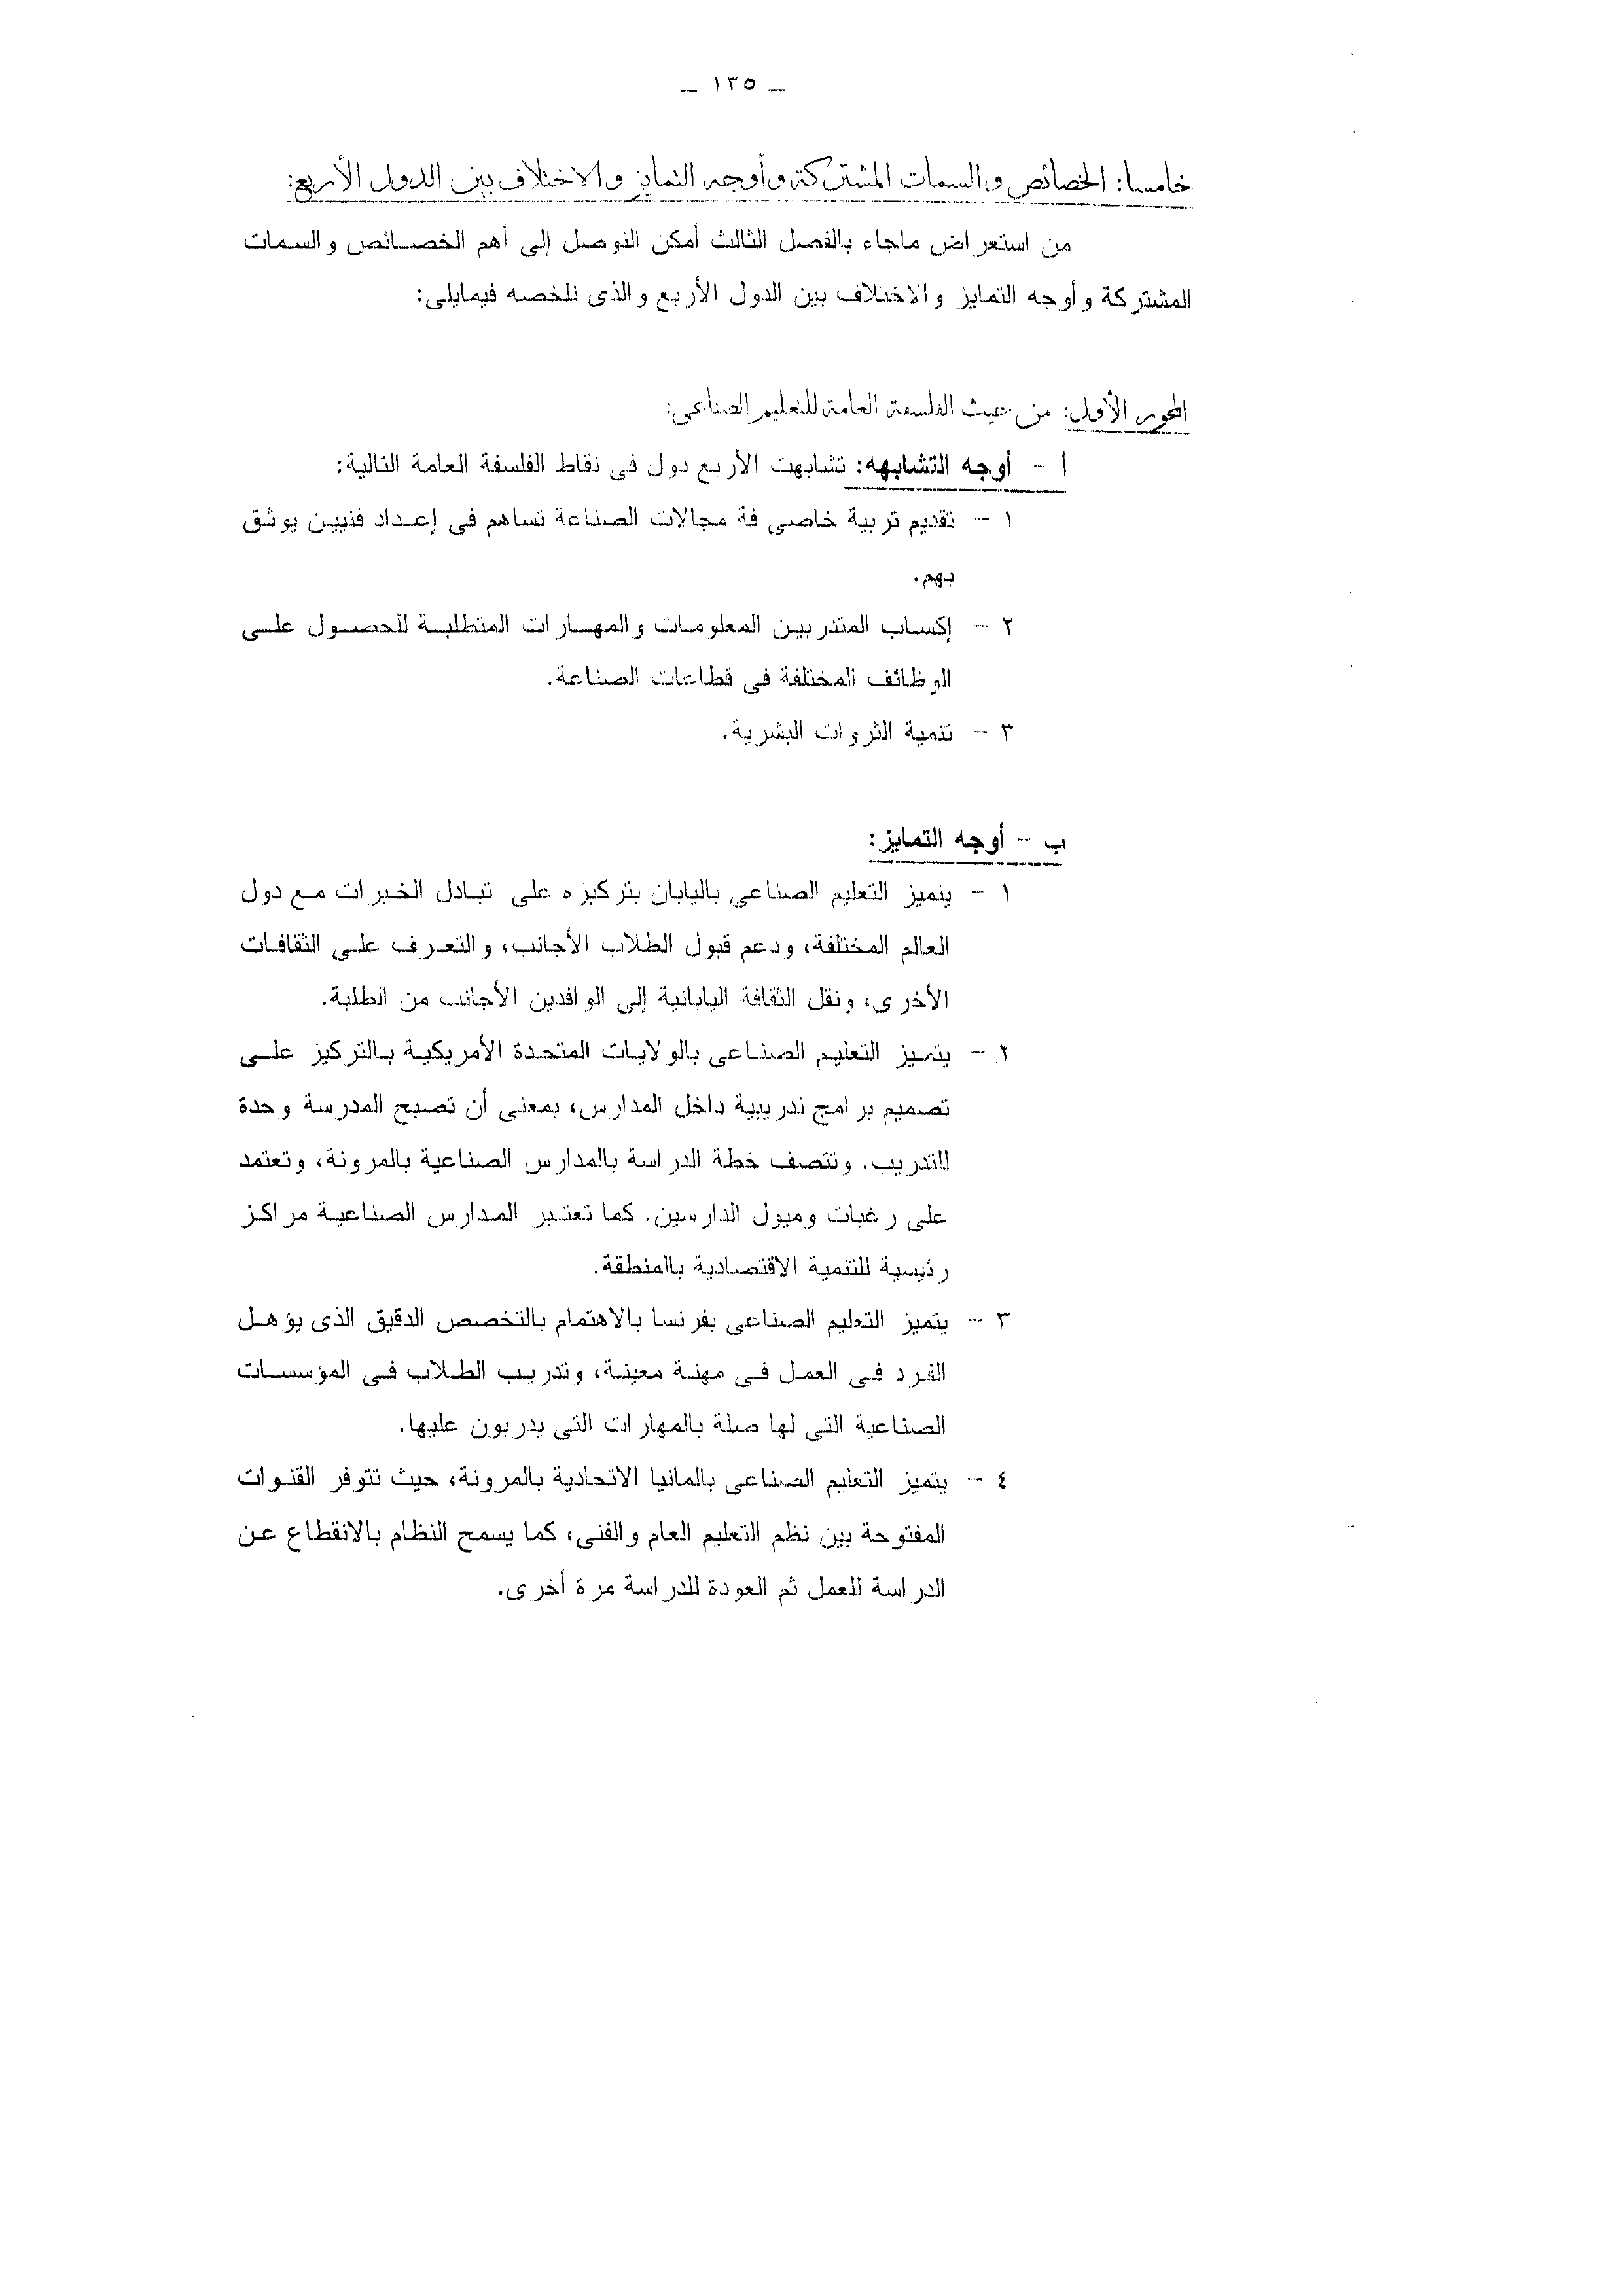 – ١٢٥ –
خامسا: الخصائص والسمات المشتركة وأوجه التمايز والاختلاف بين الدول الأربع:
من استعراض ماجاء بالفصل الثالث أمكن التوصل إلى أهم الخصائص والسمات
المشتركة وأوجه التمايز والاختلاف بين الدول الأربع والذى نلخصه فيمايلى:
المحور الأول: من حيث الفلسفة العامة للتعليم الصناعى:
أ - أوجه التشابهه: تشابهت الأربع دول فى نقاط الفلسفة العامة التالية:
١ - تقديم تربية خاصى فة مجالات الصناعة تساهم فى إعداد فنيين يوثق
بهم.
٢ - إكساب المتدربين المعلومات والمهارات المتطلبة للحصول على
الوظائف المختلفة فى قطاعات الصناعة.
٣ - تنمية الثروات البشرية.
ب - أوجه التمايز:
١ - يتميز التعليم الصناعى باليابان بتركيزه على تبادل الخبرات مع دول
العالم المختلفة، ودعم قبول الطلاب الأجانب، والتعرف على الثقافات
الأخرى، ونقل الثقافة اليابانية إلى الوافدين الأجانب من الطلبة.
٢ - يتميز التعليم الصناعى بالولايات المتحدة الأمريكية بالتركيز على
تصميم برامج تدريبية داخل المدارس، بمعنى أن تصبح المدرسة وحدة
للتدريب. وتتصف خطة الدراسة بالمدارس الصناعية بالمرونة، وتعتمد
على رغبات وميول الدارسين. كما تعتبر المدارس الصناعية مراكز
رئيسية للتنمية الاقتصادية بالمنطقة.
٣ - يتميز التعليم الصناعى بفرنسا بالاهتمام بالتخصص الدقيق الذى يؤهل
الفرد فى العمل فى مهنة معينة، وتدريب الطلاب فى المؤسسات
الصناعية التى لها صلة بالمهارات التى يدربون عليها.
٤ - يتميز التعليم الصناعى بالمانيا الاتحادية بالمرونة، حيث تتوفر القنوات
المفتوحة بين نظم التعليم العام والفنى، كما يسمح النظام بالانقطاع عن
الدراسة للعمل ثم العودة للدراسة مرة أخرى.